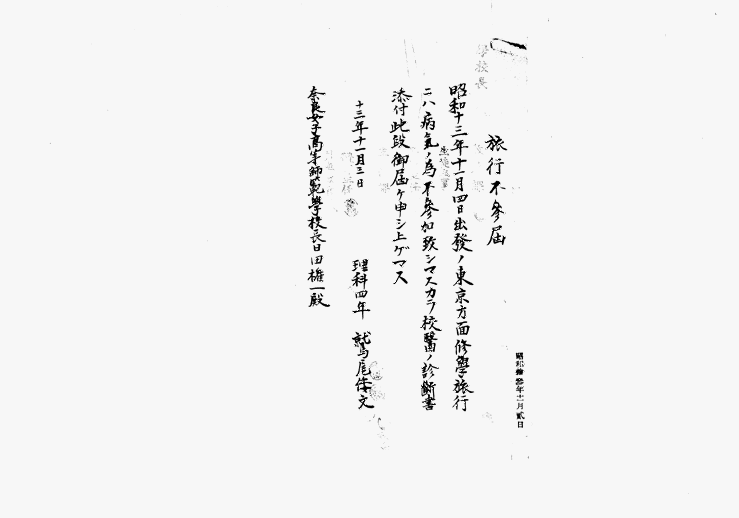 昭和拾參年十一月貳日
學校長
旅行不參届
昭和十三年十一月四日出發ノ東京方面修學旅行
ニハ病氣ノ為不參加致シマスカラ校醫ノ診斷書
添付此段御届ケ申シ上ゲマス
十三年十一月三日
理科四年 鷲尾倭文
奈良女子高等師範學校長日田権一殿